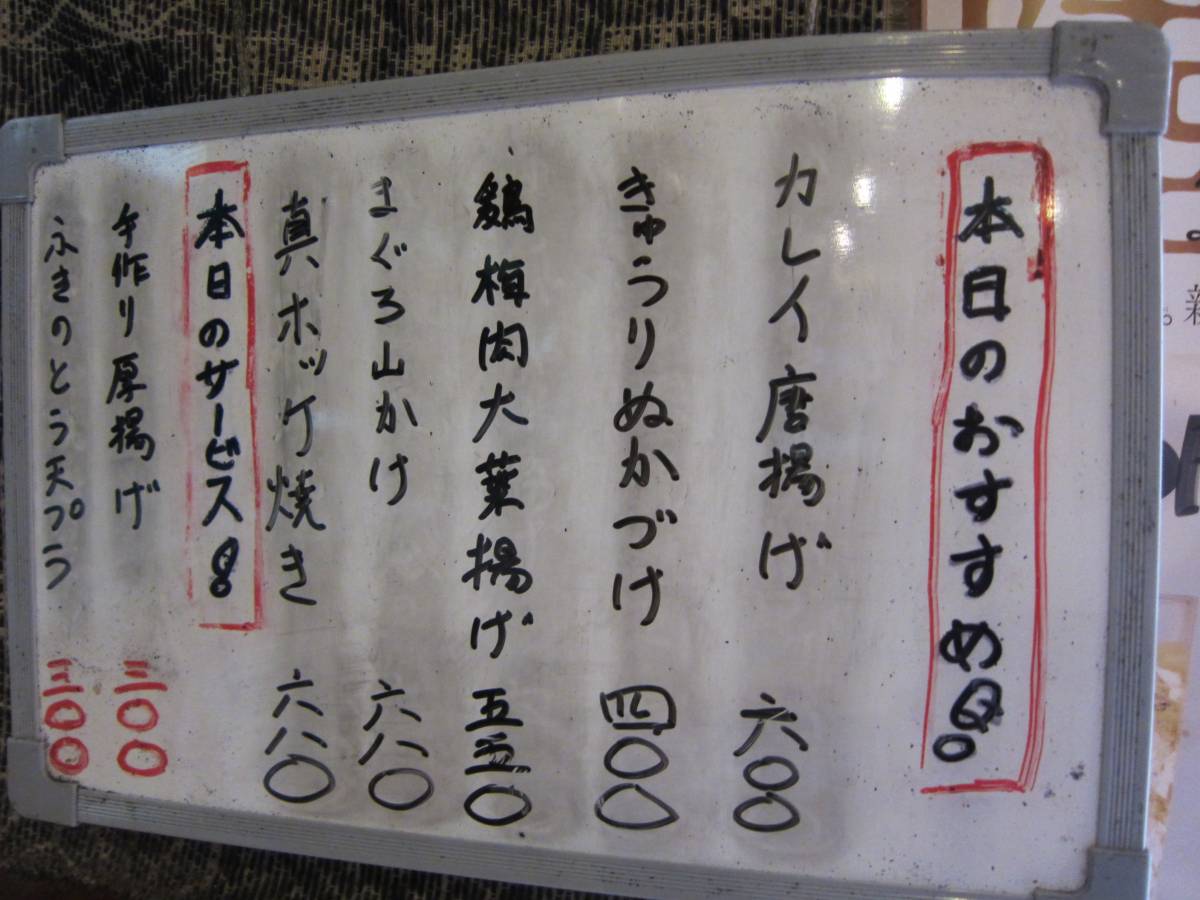 本日のおすすめ!!
カレイ唐揚げ 六〇〇
きゅうりぬかづけ 四〇〇
鶏梅肉大葉揚げ 五五〇
まぐろ山かけ 六八〇
真ホッケ焼き 六八〇
本日のサービス!!
手作り厚揚げ 三〇〇
ふきのとう天プラ 三〇〇